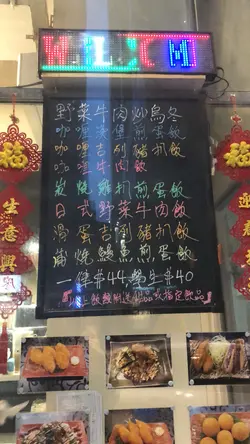 WELCOM
野菜牛肉炒烏冬
咖喱漢堡煎蛋飯
咖喱吉列豬扒飯
咖喱牛肉飯
炭燒雞扒煎蛋飯
日式野菜牛肉飯
滑蛋吉列豬扒飯
蒲燒鰻魚煎蛋飯
一律$44,學生$40
生意興